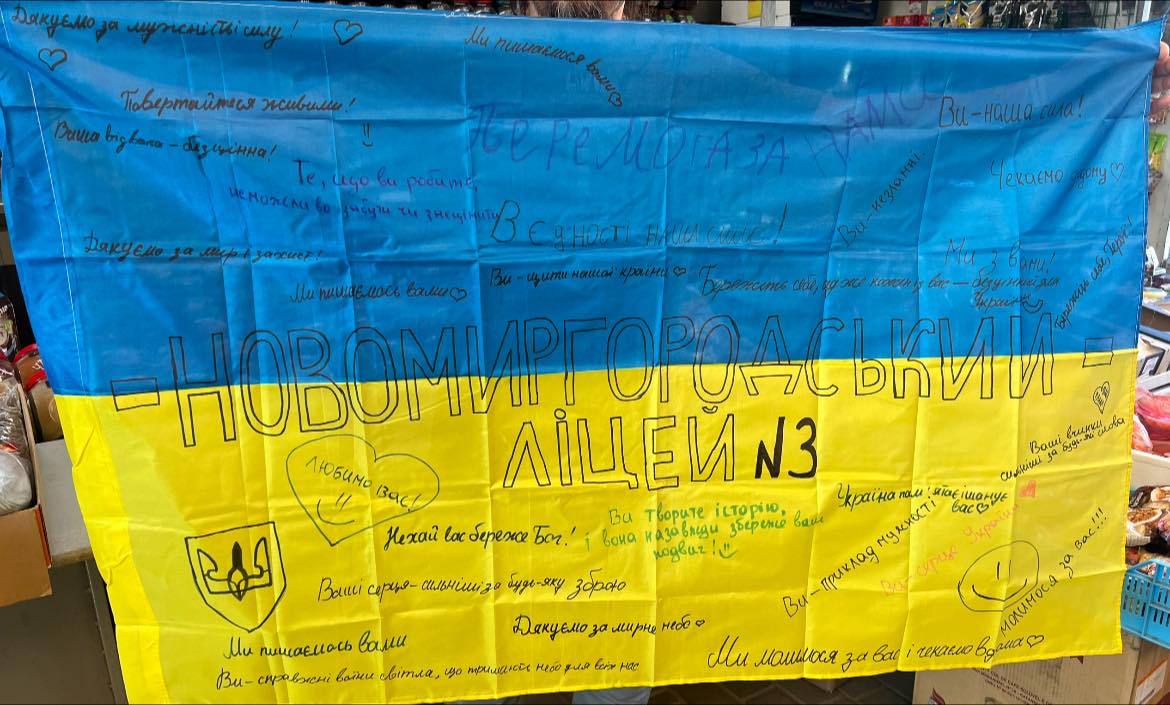 Дякуємо за мужність і силу!
Ми пишаємося вами
Повертайтеся живими!
Ваша відвага – безцінна!
ПЕРЕМОГА ЗА НАМИ
Ви-наша сила!
Те, що ви робите,
неможливо забути чи знецінити
Чекаємо вдома
Ви-незламні.
В єдності наша сила!
Дякуємо за мир і захист!
Ми з вами!
Ви-щити нашої країни
Ми пишаємось вами
Бережіть себе, адже кожен із вас – безцінний для
України
Бережіть себе, Герої!
-НОВОМИРГОРОДСЬКИЙ-
ЛІЦЕЙ N3
ЛЮБИМО
ВАС!
Ваші вчинки
сильніші за будь-які слова
Україна пам'ятає і шанує
вас
Нехай вас береже Бог!
Ви творите історію,
і вона назавжди збереже ваш
подвиг!
Ви-приклад мужності
Ви-серце України
молимося за вас!!!
Ваші серця-сильніші за будь-яку зброю
Дякуємо за мирне небо
Ми пишаємось вами
Ви-справжні воїни світла, що тримають небо для всіх нас
Ми молимося за вас і чекаємо вдома